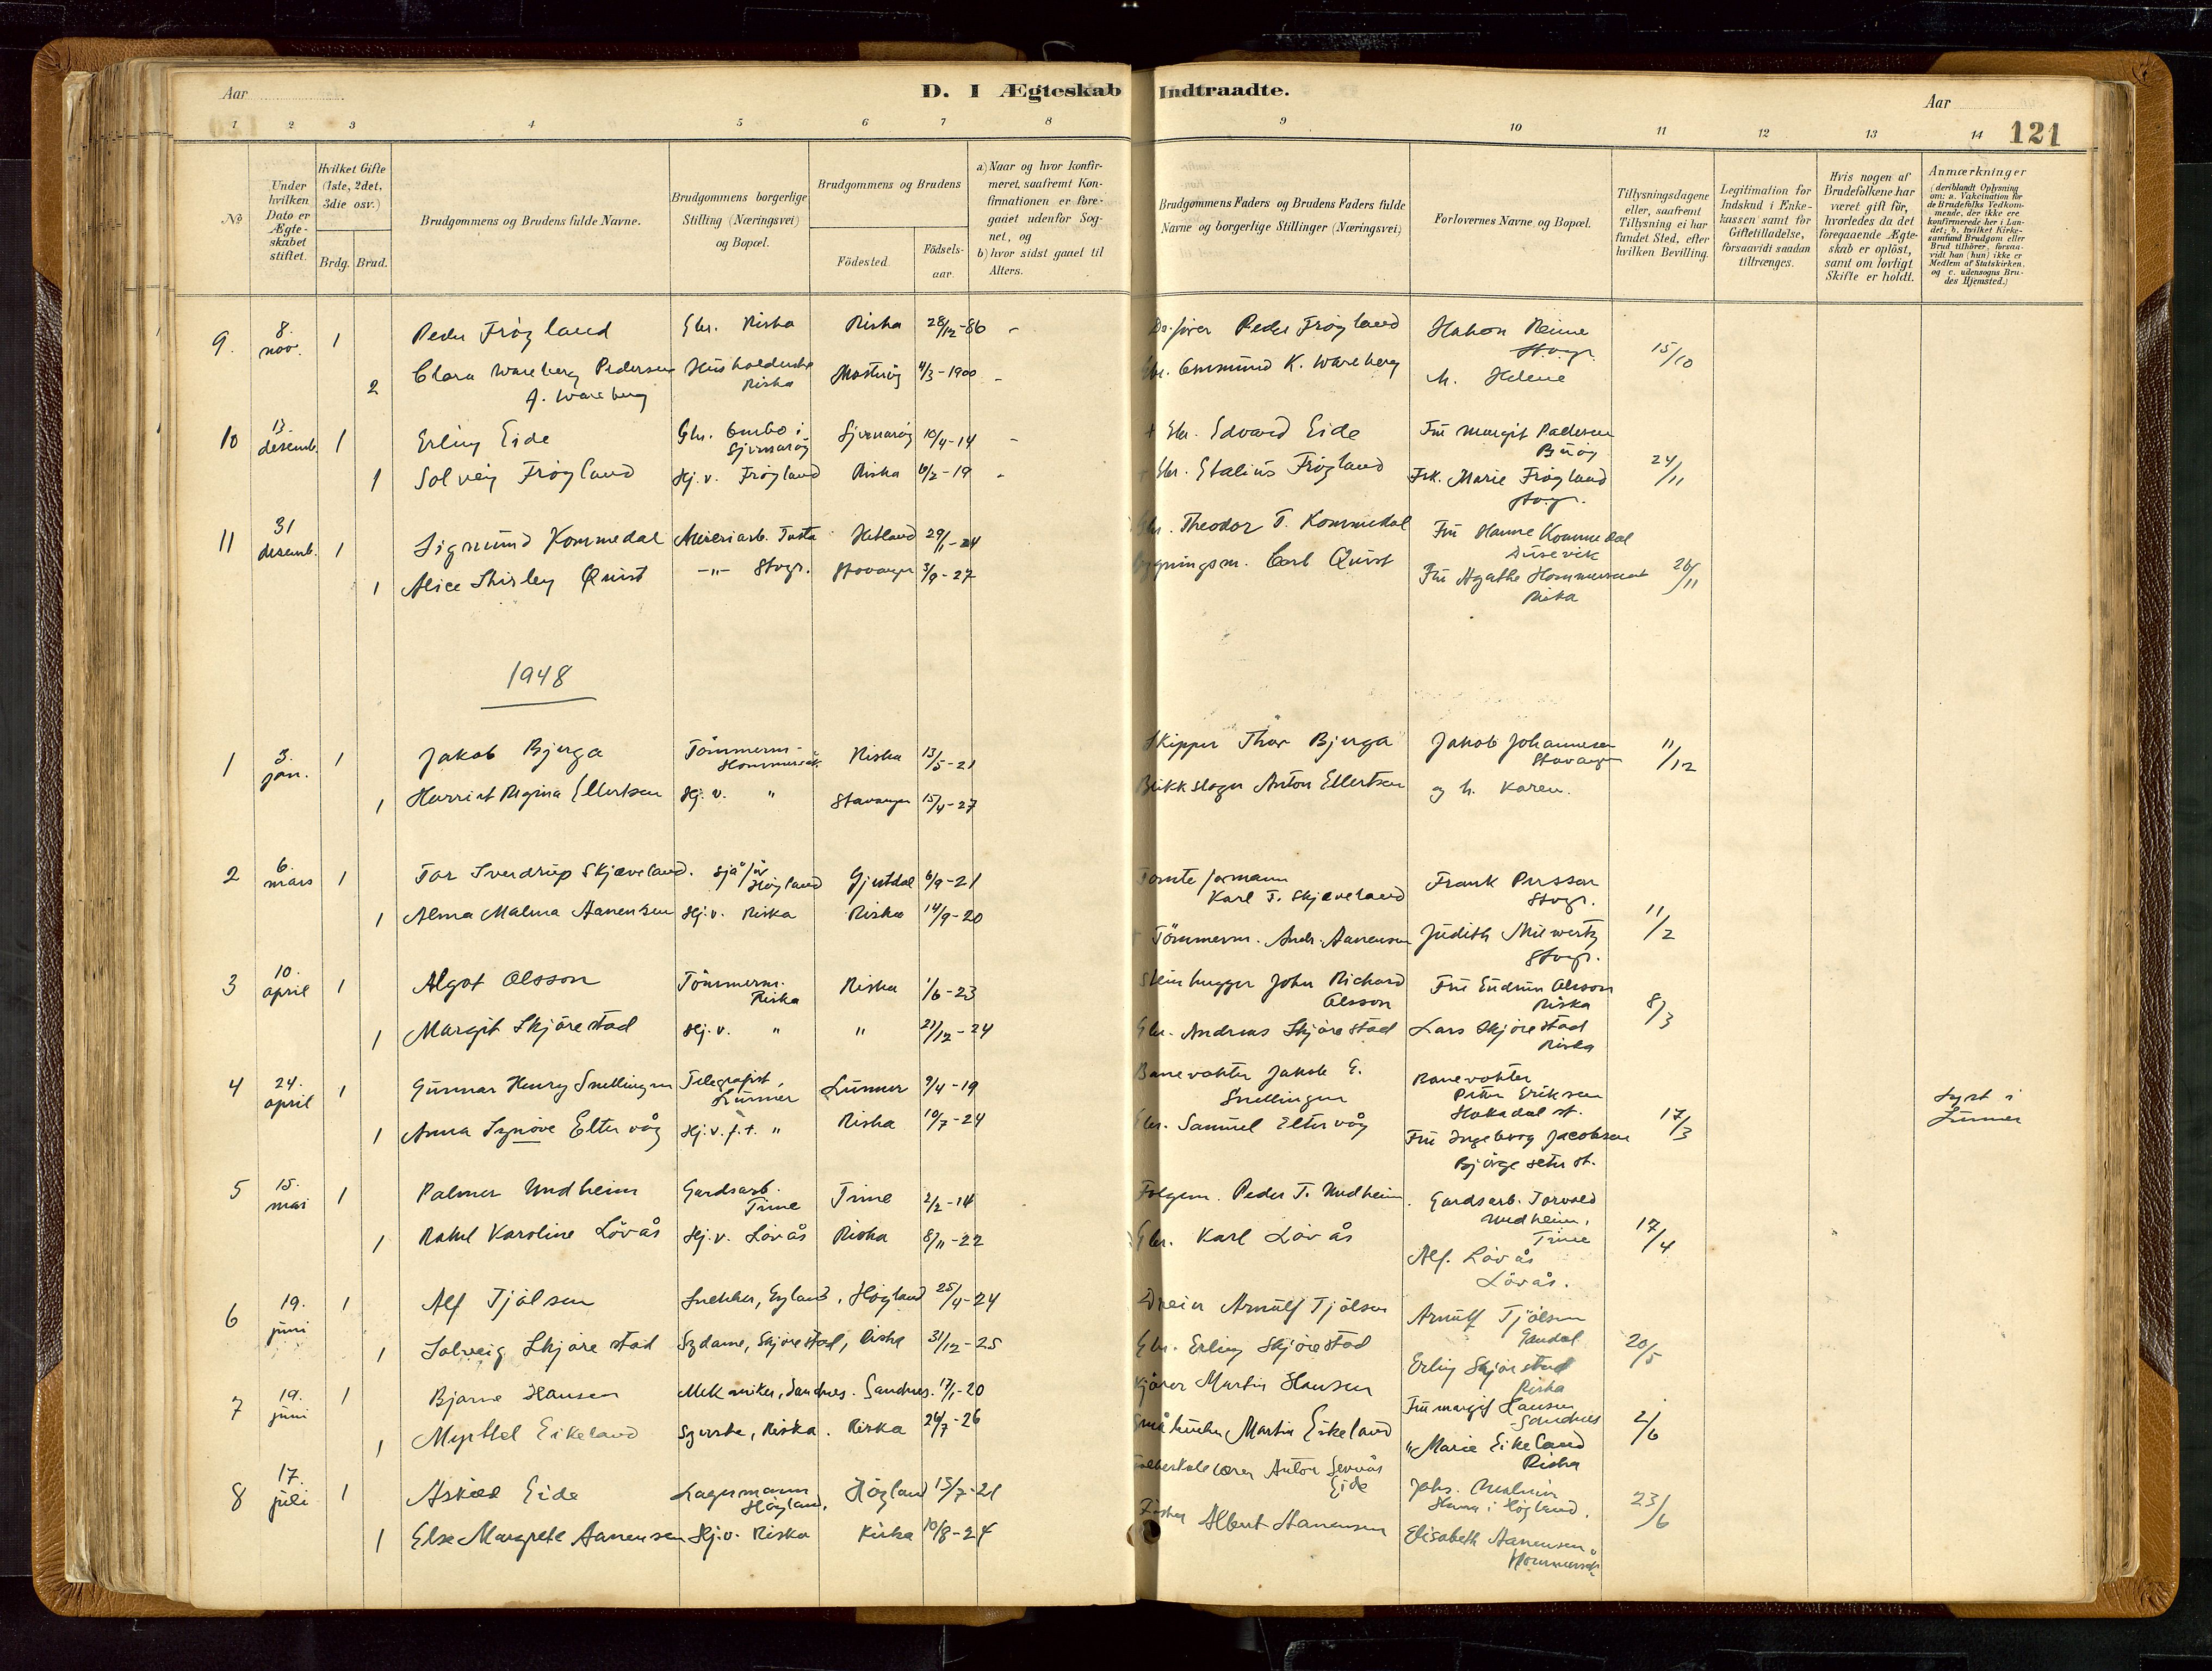 Aar
D. I Ægteskab Indtraadte.
Aar
121
1 2 3 4 5 6 7 8 9 10 11 12 13 14
No
Under hvilken Dato er Ægte-skabet stiftet.
Hvilket Gifte (1ste, 2det, 3die osv.)
Brdg. Brud.
Brudgommens og Brudens fulde Navne.
Brudgommens borgerlige Stilling (Næringsvei) og Bopæl.
Brudgommens og Brudens
Födested.
Födsels-aar.
a) Naar og hvor konfir-meret, saafremt Kon-firmationen er fore-gaaet udenfor Sog-net, og
b) hvor sidst gaaet til Alters.
Brudgommens Faders og Brudens Faders fulde Navne og borgerlige Stillinger (Næringsvei)
Forlovernes Navne og Bopæl.
Tillysningsdagene eller, saafremt Tillysning ei har fundet Sted, efter hvilken Bevilling.
Legitimation for Indskud i Enke-kassen samt for Giftetilladelse, forsaavidt saadan tiltrænges.
Hvis nogen af Brudefolkene har været gift för, hvorledes da det foregaaende Ægte-skab er oplöst, samt om lovligt Skifte er holdt.
Anmærkninger
(deriblandt Oplysning om: a. Vakcination for de Brudefolks Vedkom-mende, der ikke ere konfirmerede her i Lan-det; b. hvilket Kirke-samfund Brudgom eller Brud tilhörer, forsaa-vidt han (hun) ikke er Medlem af Statskirken, og c. udensogns Bru-des Hjemsted.)
9. 8. nov. 1 Peder Frøyland Gbr. Riska Riska 28/12-86 - Peder Frøyland Hakon Reime Stvgr. 15/10
2 Clara Wareberg Pedersen f. Wareberg Husholderske Riska Mosterøy 4/3-1900 - Gbr. K. Wareberg M. Helene
10 13. desemb. 1 Erling Eide Gbr. Sjernarøy Sjernarøy 10/4-14 - + Gbr. Edvard Eide Fru Margit Pedersen Buøy 24/11
1 Solveig Frøyland Hj.v. Frøyland Riska 6/2-19 - + Gbr. Frøyland Frk. Marie Frøyland Stvgr.
11 31 desemb. 1 Sigmund Kommedal Meieriarb. Tasta Hetland 29/1-24 Gbr. Theodor T. Kommedal Fru Hanne Kommedal Dusevik 26/11
1 Alice Shirley Quist -"- Stvgr. Stavanger 3/9-27 Bygningsm. Carl Quist Fru Agathe Hommersand Riska
1948
1 3. jan. 1 Jakob Bjerga Tömmerm. Hommersåk Riska 13/5-21 Skipper Thor Bjerga Jakob Johannesen Stavanger 11/12
1 Harriet Regina Ellertsen Hj.v. " Stavanger 15/4-27 Blikkslager Anton Ellertsen og h. Karen.
2 6. mars 1 Tor Sverdrup Skjæveland. Sjåfør Høyland Gjestdal 6/9-21 Tomteformann Karl T. Skjæveland Frank Persson Stvgr. 11/2
1 Alma Malma Aanensen Hj.v. Riska Riska 14/9-20 Tömmerm. Andr. Aanensen Judith Milwertz Stvgr.
3 10. april 1 Algot Olsson Tömmerm. Riska Riska 1/6-23 Steinhugger John Richard Olsson Fru Gudrun Olsson Riska 8/3
1 Margit Skjörestad Hj.v. " " 21/12-24 Gbr. Andreas Skjörestad Lars Skjörestad Riska
4 24. april 1 Gunnar Henry Snellingen Telegrafist, Lunner Lunner 9/4-19 Banevokter Jakob G. Snellingen Banevokter Peter Eriksen Hakadal st. 17/3 Lyst i Lunner
1 Anna Synöve Eltervåg Hj.v. f.t. " Riska 10/7-24 Gbr. Samuel Eltervåg Fru Ingeborg Jacobsen Bjørgeseter st.
5 15. mai 1 Palmer Undheim Gardsarb. Time Time 2/2-14 Folgem. Peder T. Undheim. Gardsarb. Torvald Undheim, Time 17/4
1 Rakel Karoline Lövås Hj.v. Lövås Riska 8/11-22 Gbr. Karl Lövås Alf. Lövås Lövås.
6 19. juni 1 Alf Tjölsen Snekker, Gyland, Høyland 25/4-24 Dreier Arnulf Tjölsen Arnulf Tjölsen Gandal 20/5
1 Solveig Skjörestad Sydame, Skjörestad, Riska 31/12-25 Gbr. Erling Skjörestad Erling Skjörestad Riska
7 19. juni 1 Bjarne Hansen Mekaniker, Sandnes. Sandnes. 17/1-20 Kjører Martin Hansen Fru Margit Hansen Sandnes 2/6
1 Myrttel Eikeland Syerske, Riska. Riska 26/7-26 Småbruker Martin Eikeland " Marie Eikeland Riska
8 17. juli 1 Askild Eide Lagermann Høyland. Høyland 13/7-21 Folkeskolelærer Anton Eide Johs. Hana i Høyland. 23/6
1 Else Margrete Aanensen Hj.v. Riska Riska 10/8-24 Fisker Albert Aanensen Elisabeth Aanensen, Hommersåk